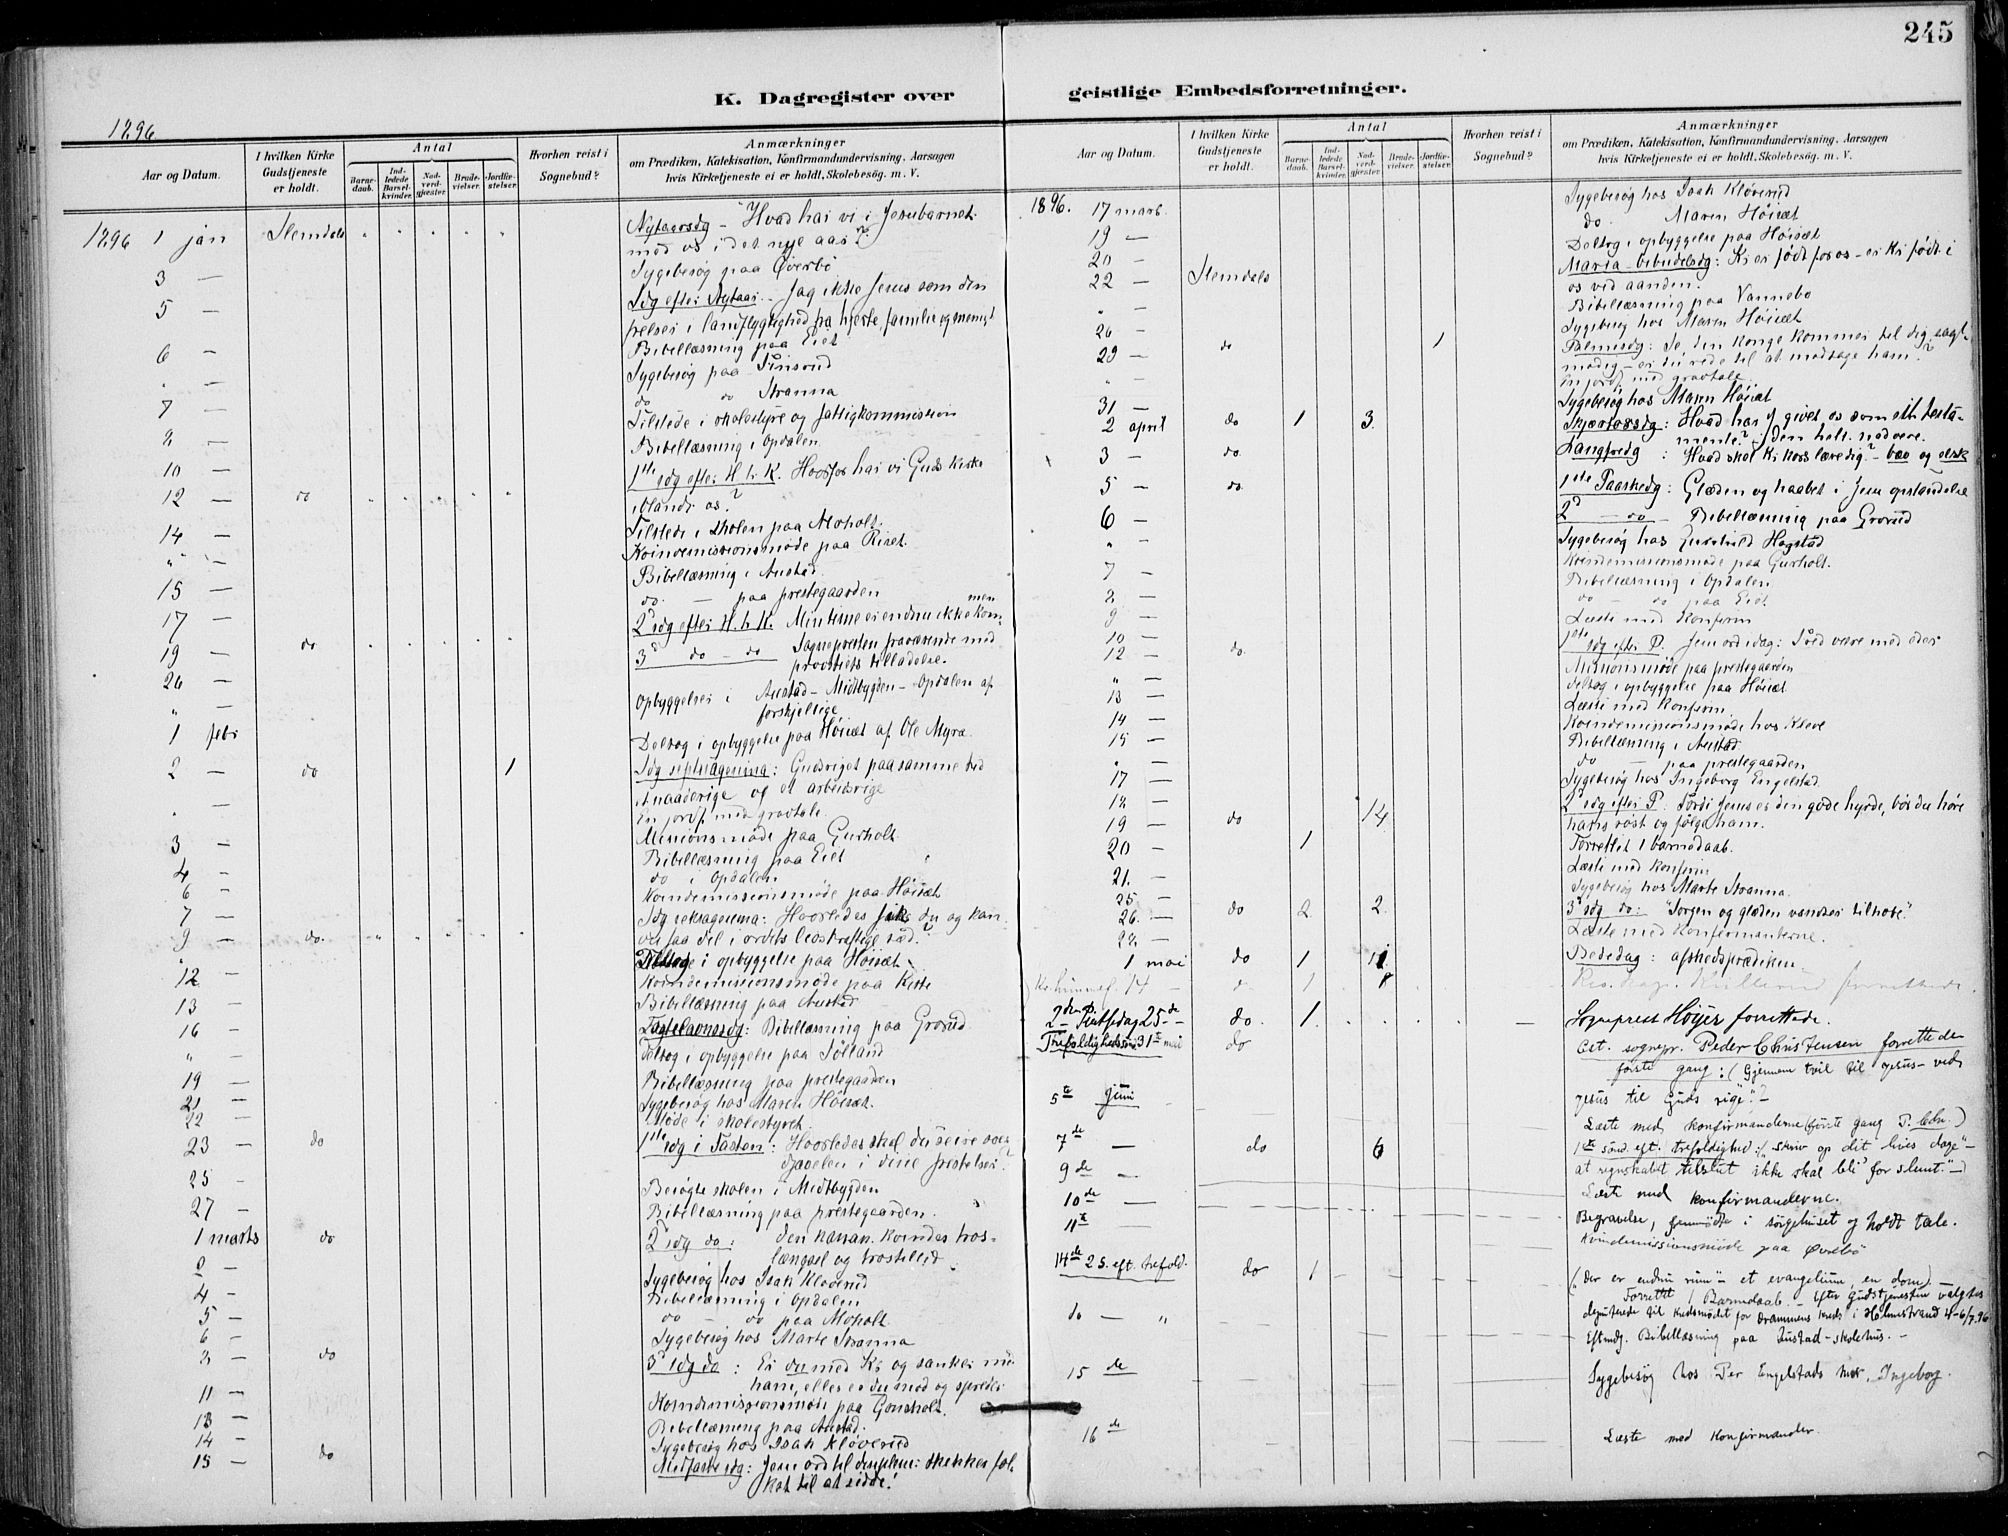 245
K. Dagregister over geistlige Embedsforretninger.
1896
Aar og Datum.
I hvilken Kirke Gudstjeneste er holdt.
Antal
Barnedaab.
Indledede Barselkvinder.
Nadverdgjester.
Brudevielser.
Jordfæstelser.
Hvorhen reist i Sognebud?
Anmærkninger
om Prædiken, Katekisation, Konfirmandundervisning, Aarsagen
hvis Kirketjeneste ei er holdt, Skolebesög m. V.
1896 1 jan Nytaarsdg - Hvad har vi i Jesubarnet
med os i det nye aar?
3 — Sygebesøg paa Øverbø
5 — Sdg efter Nytaar - Jag ikke Jesus som den
Bibellæsning paa Eiet
6 — Sygebesøg paa
" — do do Stranna
7 — Tilstede i skolestyre og fattigkommission
8 — Bibellæsning i Opdalen
10 —
12 — do 1ste sdg efter H. t. K. Hvorfor har vi Guds Kirke
iblandt os?
14 — Tilstede i skolen paa Moholt.
" — Kvindemissionsmøde paa Riset.
15 — Bibellæsning i Austad
17 — do — paa prestegaarden
19 — do 2d sdg efter H. t. K.
26 — 3d do - do Sognepresten fraværende med
provstiets tilladelse.
" — Opbyggelser i Austad - Midtbygden - Opdalen af
forskjellige
1 febr Deltog i opbyggelse paa Høisæt af Ole Myra.
2 — do 1 Sdg septuagesima: Gudsriget paa samme tid
et naaderige og et arbeidsrige
" — En jordf. med gravtale.
3 — Missionsmøde paa Gurholt
4 — Bibellæsning paa Eiet
6 — do i Opdalen
7 — Kvindemissionsmøde paa Høisæt
9 — do. Sdg seksagesima: Hvorledes du og kan
du faa del i ordets livskraftige sæd?
" i opbyggelse paa Høisæt
12 — Kvindemissionsmøde paa
13 — Bibellæsning paa Austad
16 — Fastelavnssdg: Bibellæsning paa Grorud
" — Deltog i opbyggelse paa Solland
19 — Bibellæsning paa prestegaarden
21 — Sygebesøg hos Maren Høisæt.
22 — Møde i skolestyret
23 — do 1ste sdg i Fasten: Hvorledes skal du seire over
djævelen i dine fristelser?
25 — Besøgte skolen i Midtbygden
27 — Bibellæsning paa prestegaarden.
1 marts do 2d sdg do: den kanan. kvindes tros-
længsel og trostillid.
2 — Sygebesøg hos Isak Kløverud
4 — Bibellæsning i Opdalen
5 — do — do paa Moholt
6 — Sygebesøg hos Marte Stranna
8 — do 3d sdg do: Er du med Kr. og sanker med
ham, eller er du mod og spreder
11 — Kvindemissionsmøde paa
13 — Bibellæsning paa Austad.
14 — Sygebesøg hos Isak Kløverud
15 — do Midfastesdg: Jesu ord til disiplene:
til at sidde!
Aar og Datum.
I hvilken Kirke Gudstjeneste er holdt.
Antal
Barnedaab.
Indledede Barselkvinder.
Nadverdgjester.
Brudevielser.
Jordfæstelser.
Hvorhen reist i Sognebud?
Anmærkninger
om Prædiken, Katekisation, Konfirmandundervisning, Aarsagen
hvis Kirketjeneste ei er holdt, Skolebesög m. V.
1896. 17 marts Sygebesøg hos Isak Kløverud
19 — do Maren Høisæt
20 — Deltog i opbyggelse paa Høisæt
22 — Maria bebudelsdg: Kr. er født for os - er Kr. født i
os ved aanden?
" — Bibellæsning paa Vannebo
26 — Sygebesøg hos Maren Høisæt
29 — do 1 Palmesdg: Se, din konge kommer til dig, sagt-
modig - er du rede til at modtage ham?
" — En jordf. med gravtale
31 — Sygebesøg hos Maren Høisæt
2 april do 1 3. Skjærtorsdg: Hvad har J. givet os som sit testa-
mente? I den hell. nadvere.
3 — do. Langfredg: Hvad skal Kr. kors lære dig? -
5 — do 1ste Paaskedg: Glæden og haabet i Jesu opstandelse
6 — 2d — do — Bibellæsning paa Grorud
" Sygebesøg hos Hagstad
7 — Kvindemissionsmøde paa Gurholt.
8 — Bibellæsning i Opdalen
9 — do — do paa Eiet
10 — Læste med Konfirm
12 — do. 1ste sdg efter P. Jesu ord idag: Fred være med eder
" — Missionsmøde paa prestegaarden
13 — deltog i opbyggelse paa Høisæt
14 — Læste med Konfirm.
15 — Kvindemissionsmøde hos Kleve
" — Bibellæsning i Austad
17 — do — paa prestegaarden
18 — Sygebesøg hos Ingeborg Engelstad
19 — do 14 2d sdg efter P. Fordi Jesus er den gode hyrde, bør du høre
hans røst og følge ham.
20 — 1 Forrettet 1 barnedaab.
21. — Læste med konfirm
25 — Sygebesøg hos Marte Stranna.
26. — do 2 2. 3d sdg do: "Sorgen og glæden vandrer tilhobe."
28 — Læste med Konfirmanterne.
1 mai do 1 Bededag: afskedsprædiken
14 — 1
2den Pintsedag 25de do. 1. Sogneprest Høyer forrettede.
31te mai do Cst. sognepr. Peder Christensen forrettede
første gang: (Gjennem tvil til Jesus - ved
Jesus til Guds rige"-
5te juni Læste med konfirmanderne (første gang P. Chr.)
7de — do 6 1te sønd. eft. trefoldighed: "skriv op dit livs dage" -
at regnskabet tilslut ikke skal bli for slemt."
9de — Læste med konfirmanderne.
10de — Begravelse, i sørgehuset og holdt tale.
11te — Kvindemissionsmøde paa Øvrebø
14de 2 S. eft. trefold. do 1 ("Der er endnu rum" - et evangelium, en dom) -
Forrettet 1 Barnedaab. - Efter gudstjenesten valgtes
do — " deputerede til kredsmødet for Drammens kreds i Holmestrand 4-6/7.96
Eftmdg. Bibellæsning paa Austad-skolehus. -
15de Sygebesøg hos Per Engelstads mor, Ingeborg.
16de Læste med Konfirmander.